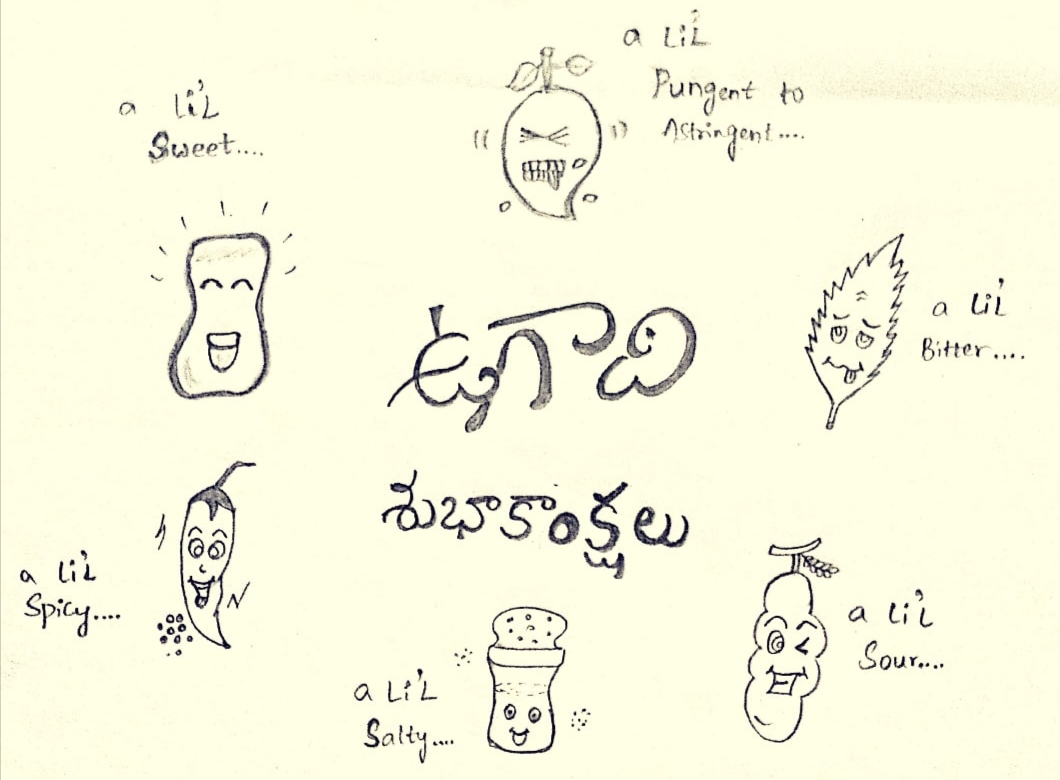 a Li'L
Pungent to
Astringent....
a Li'L
Sweet....
a Li'L
Bitter....
ఉగాది
శుభాకాంక్షలు
a Li'L
Spicy....
a Li'L
Sour....
a Li'L
Salty....